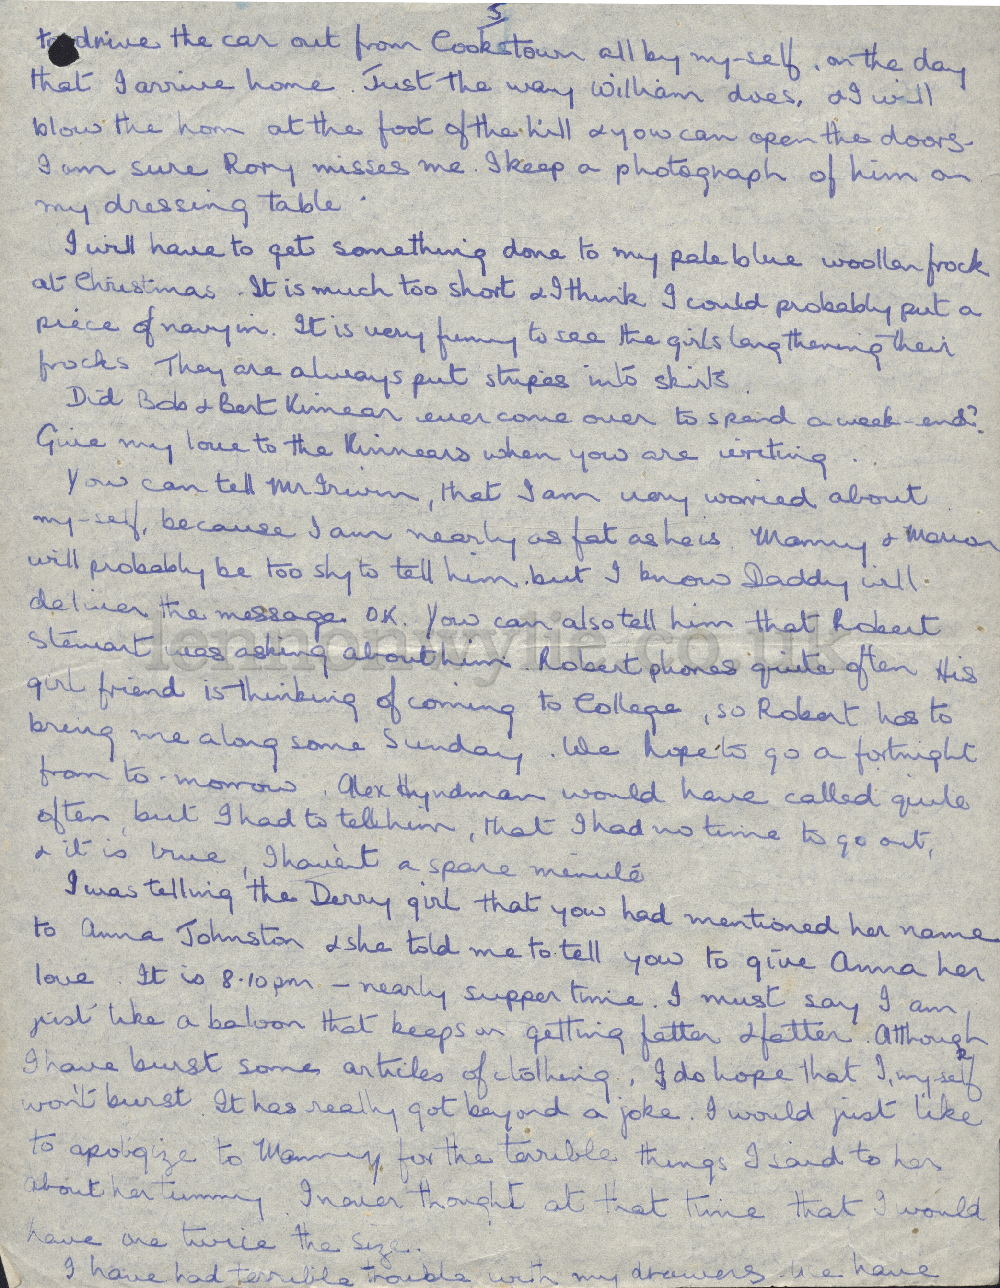 5
to drive the car out from Cookstown all by my-self, on the day
that I arrive home. Just the way William does, & I will
blow the horn at the foot of the hill & you can open the doors.
I am sure Rory misses me. I keep a photograph of him on
my dressing table.
I will have to get something done to my pale blue woollen frock
at Christmas. It is much too short & I think I could probably put a
piece of navy in. It is very funny to see the girls lengthening their
frocks. They are always put stripes into skirts.
Did Bob & Bert Kinnear ever come over to spend a week-end?
Give my love to the Kinnears when you are writing.
You can tell Mr Irwin, that I am very worried about
my-self, because I am nearly as fat as he is. Mammy & Marion
will probably be too shy to tell him, but I know Daddy will
deliver the message. OK. You can also tell him that Robert
Stewart was asking about him. Robert phones quite often. His
girl friend is thinking of coming to College, so Robert has to
bring me along some Sunday. We hope to go a fortnight
from to-morrow. Alex Hyndman would have called quite
often, but I had to tell him, that I had no time to go out,
& it is true, I haven't a spare minute
I was telling the Derry girl that you had mentioned her name
to Anna Johnston & she told me to tell you to give Anna her
love. It is 8.10pm – nearly supper time. I must say I am
just like a baloon that keeps on getting fatter & fatter. Although
I have burst some articles of clothing, I do hope that I, my-self
won't burst. It has really got beyond a joke. I would just like
to apoligize to Mammy for the terrible things I said to her
about her tummy. I never thought at that time that I would
have one twice the size..
I have had terrible trouble with my drawers. We have
lennonwylie.co.uk